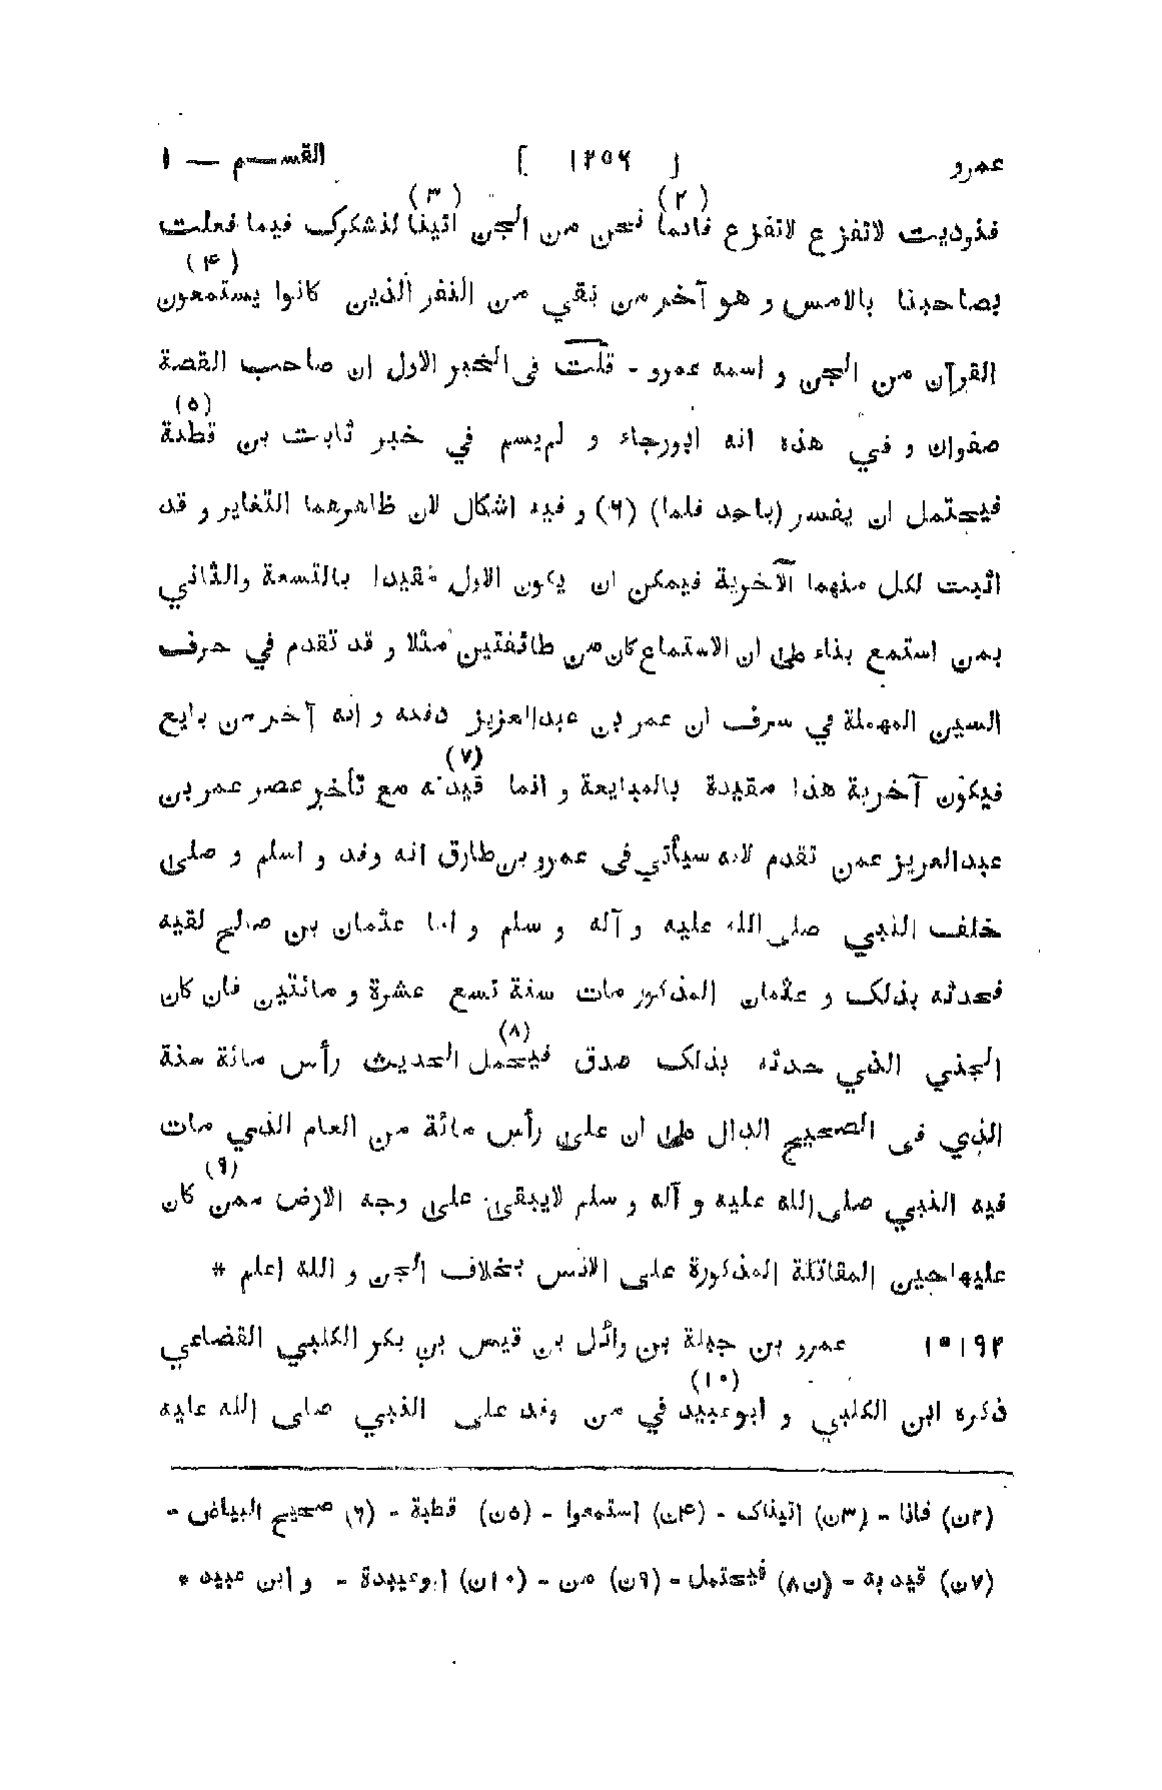 عمرو [ ١٢٥٦ ] القسم — ١
فنوديت لاتفزع لاتفزع فانما (٢) نحن من الجن اتينا (٣) لنشكرك فيما فعلت
بصاحبنا بالامس و هو آخر من بقي من النفر الذين كانوا يستمعون (۴)
القرآن من الجن و اسمه عمرو - قلت فى الخبر الاول ان صاحب القصة
صفوان و في هذه انه ابورجاء و لم يسم في خبر ثابت بن قطنة (٥)
فيحتمل ان يفسر (باحد فلما) (٦) و فيه اشكال لان ظاهرهما التغاير و قد
اثبت لكل منهما الآخرية فيمكن ان يكون الاول مقيدا بالتسعة والثاني
بمن استمع بناء على ان الاستماع كان من طائفتين مثلا و قد تقدم في حرف
السين المهملة في سرف ان عمر بن عبدالعزيز دفنه و انه آخر من بايع
فيكون آخرية هذا مقيدة بالمبايعة و انما قيدته (٧) مع تأخر عصر عمر بن
عبدالعزيز عمن تقدم لانه سيأتي فى عمرو بن طارق انه وفد و اسلم و صلى
خلف النبي صلى الله عليه و آله و سلم و اما عثمان بن صالح لقيه
فحدثه بذلك و عثمان المذكور مات سنة تسع عشرة و مائتين فان كان
الجني الذي حدثه بذلك صدق فيحمل (٨) الحديث رأس مائة سنة
الذي فى الصحيح الدال على ان على رأس مائة من العام الذي مات
فيه النبي صلى الله عليه و آله و سلم لايبقى على وجه الارض ممن (٩) كان
عليها حين المقاتلة المذكورة على الانس بخلاف الجن و الله اعلم *
١٠١٩٢ عمرو بن جبلة بن وائل بن قيس بن بكر الكلبي القضاعي
ذكره ابن الكلبي و ابوعبيد (١٠) في من وفد على النبي صلى الله عليه
(٢ن) فانا - (٣ن) اتيناك - (۴ن) استمعوا - (٥ن) قطبة - (٦) صحيح البياض -
(٧ن) قيد به - (ن٨) فيحتمل - (٩ن) من - (١٠ن) ابوعبيدة - و ابن عبيد *